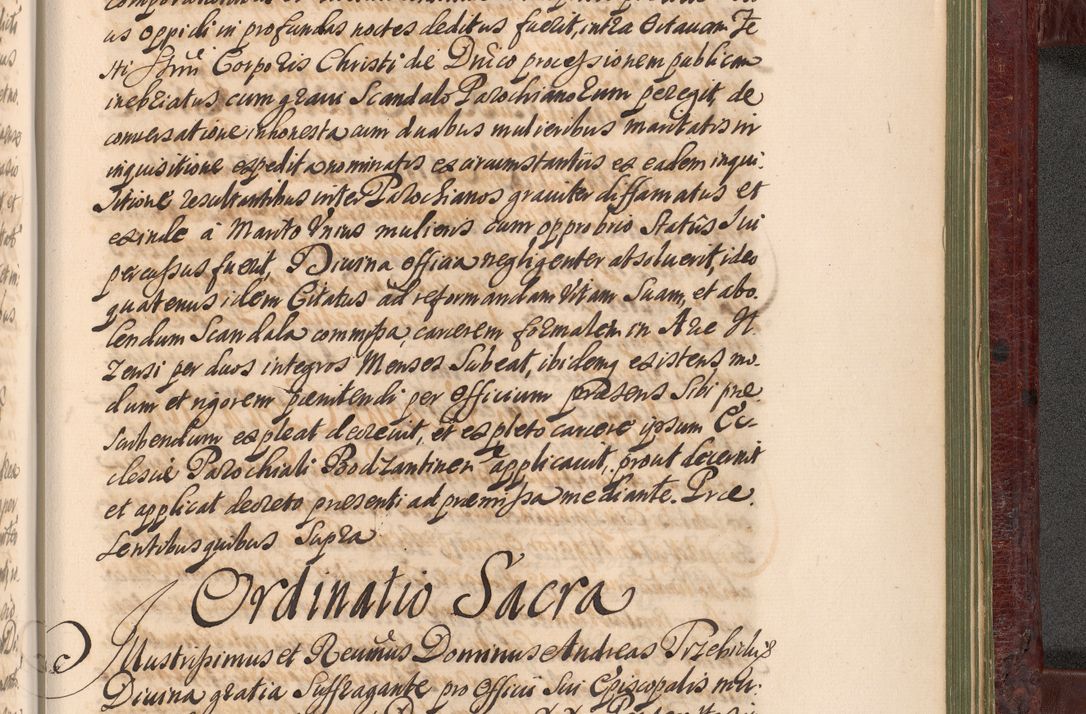 us oppidi in profundas noctes deditus fuerit, intra Octavam Fe
sti Ssmi Corporis Christi die Dnico processionem publicam
inebriatus cum gravi Scandalo Parochianorum peregit, de
conversatione inhonesta cum duabus mulieribus maritatis in
inquisitione expedita nominatis ex circumstantiis ex eadem inqui-
sitione resultantibus inter Parochianos graviter diffamatus et
exinde a Marito Unius mulieris cum opprobrio Status Sui
percussus fuerit, Divina officia negligenter absolverit, ideo
quatenus idem Citatus ad reformandam Vitam Suam, et abo-
lendum Scandala commissa, carcerem formalem in Arce Il-
zensi per duos integros Menses Subeat, ibidemq existens, mo-
dum et rigorem pœnitendi per Officium præsens Sibi præ-
scribendum expleat decrevit, et expleto carcere ipsum Ec-
clesiæ Parochiali Bodzantinen applicavit, prout decernit
et applicat decreto presenti ad præmissa mediante. Præ
sentibus quibus Supra
Ordinatio Sacra
Illustrissimus et Revmus Dominus Andreas Trzebicki
Divina gratia Suffragante pro Officii Sui Episcopalis mu-